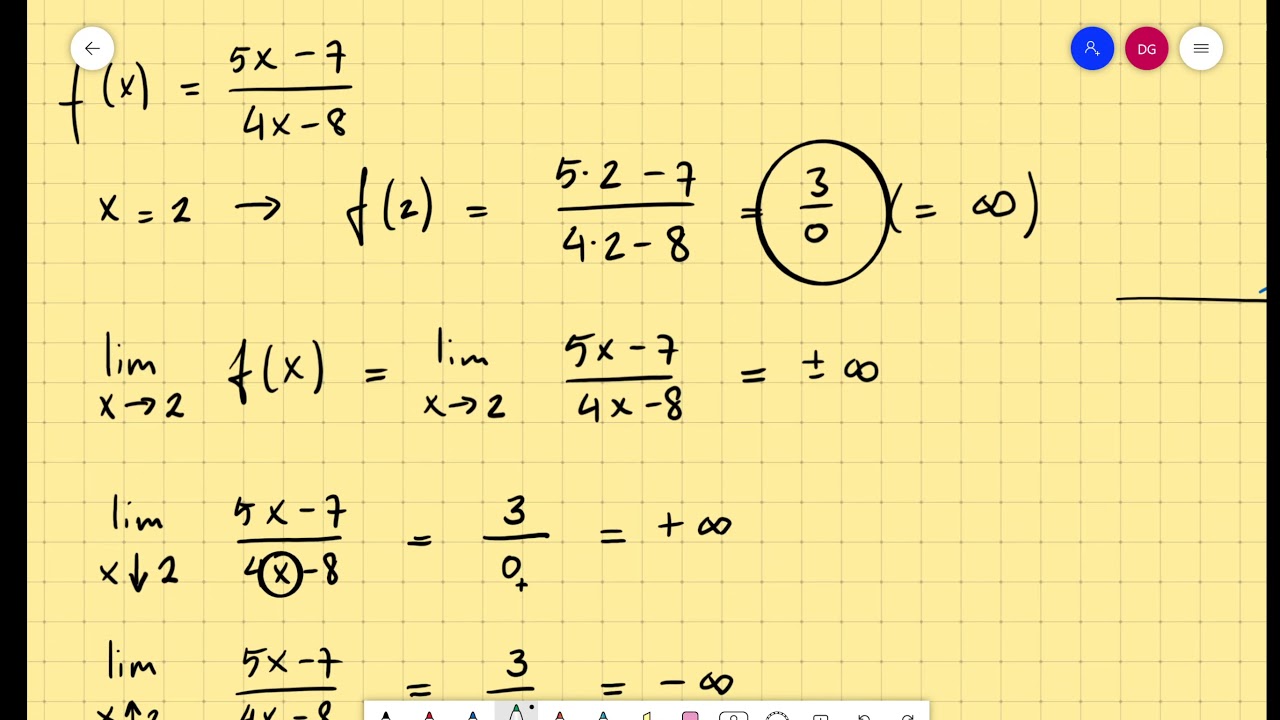 DG
f(x) = (5x - 7)/(4x - 8)
x = 2 → f(2) = (5·2 - 7)/(4·2 - 8) = 3/0 (= ∞)
lim x→2 f(x) = lim x→2 (5x - 7)/(4x - 8) = ± ∞
lim x↓2 (5x - 7)/(4x - 8) = 3/0₊ = + ∞
lim x↑2 (5x - 7)/(4x - 8) = 3/ = - ∞